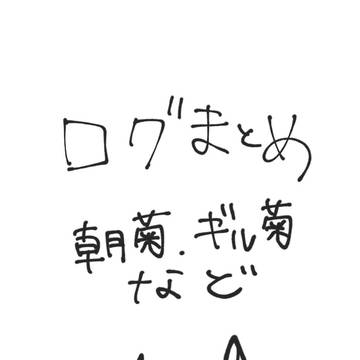 ログまとめ
朝菊.ギル菊
など